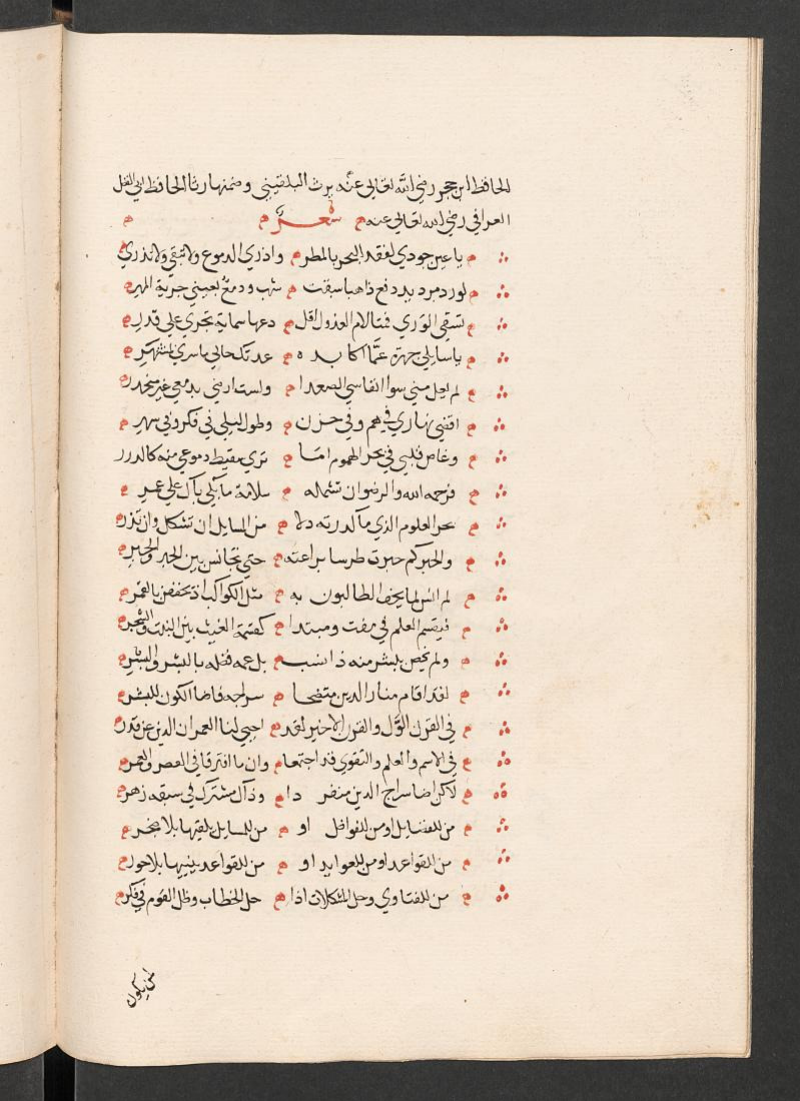 للحافظ ابن حجر رضي الله تعالى عنه يرث البلقيني وضمنها رثا الحافظ ابي الفضل
العراقي رضي الله تعالى عنه شعر
يا عين جودي لفقد البحر بالمطر واذري الدموع ولا تبقي ولا تذري
لو رد مرد يد دفع ذاهبا سبقت شهب ودمع بعيني جرية النهر
تسقي الوري فمتا لام العذول اقل دعها سماية تجري علي قدر
يا سايلي جهرة عما اكابده عدتك حالي ما سري بمشتهر
لم اخل مني سوا انفاسي الصعدا ولست ارضي بدمعي غير منحدر
اقضي نهاري في هم وفي حزن وطول ليلي في فكر وفي سهر
وغاص قلبي في بحر الهموم اما تري سقيط دموعي منه كالدرر
فرحمه الله والرضوان تشمله سلامة ما بكي باك علي عمر
بحر العلوم الذي ما كدرته دلا من المسايل ان تشكل وان تذر
والحبر كم حبرت طرسا براعته حتي تجانس بين الحبر والحبر
لم انس لما يحف الطالبون به مثل الكواكب اذ يحففن بالقمر
فيقسم العلم في مفت ومبتدا كقسمة الغيث بين النبت والشجر
ولم يخص ببشر منه ذا نسب بل عمه فضله بالبشر والبشر
لقد اقام منار الدين متضحا سراجه فاضا الكون للبشر
في القرن الاول والقرن الاخير لقد احيي لنا العمران الدين عن قدر
في الاسم والعلم والتقوي قد اجتمعا وان ما افترقا في العصر والعمر
لاكن اضا سراج الدين منفردا وذاك مشترك في سبعه زهر
من للفضايل او من للفواضل او من للمسايل يلقيها بلا ضجر
من القواعد او من للعوايد او من للقواعد يبنيها بلا خور
من للفتاوي وحل المشكلات اذا جل الخطاب وظل القوم في فكر
لمن يكون